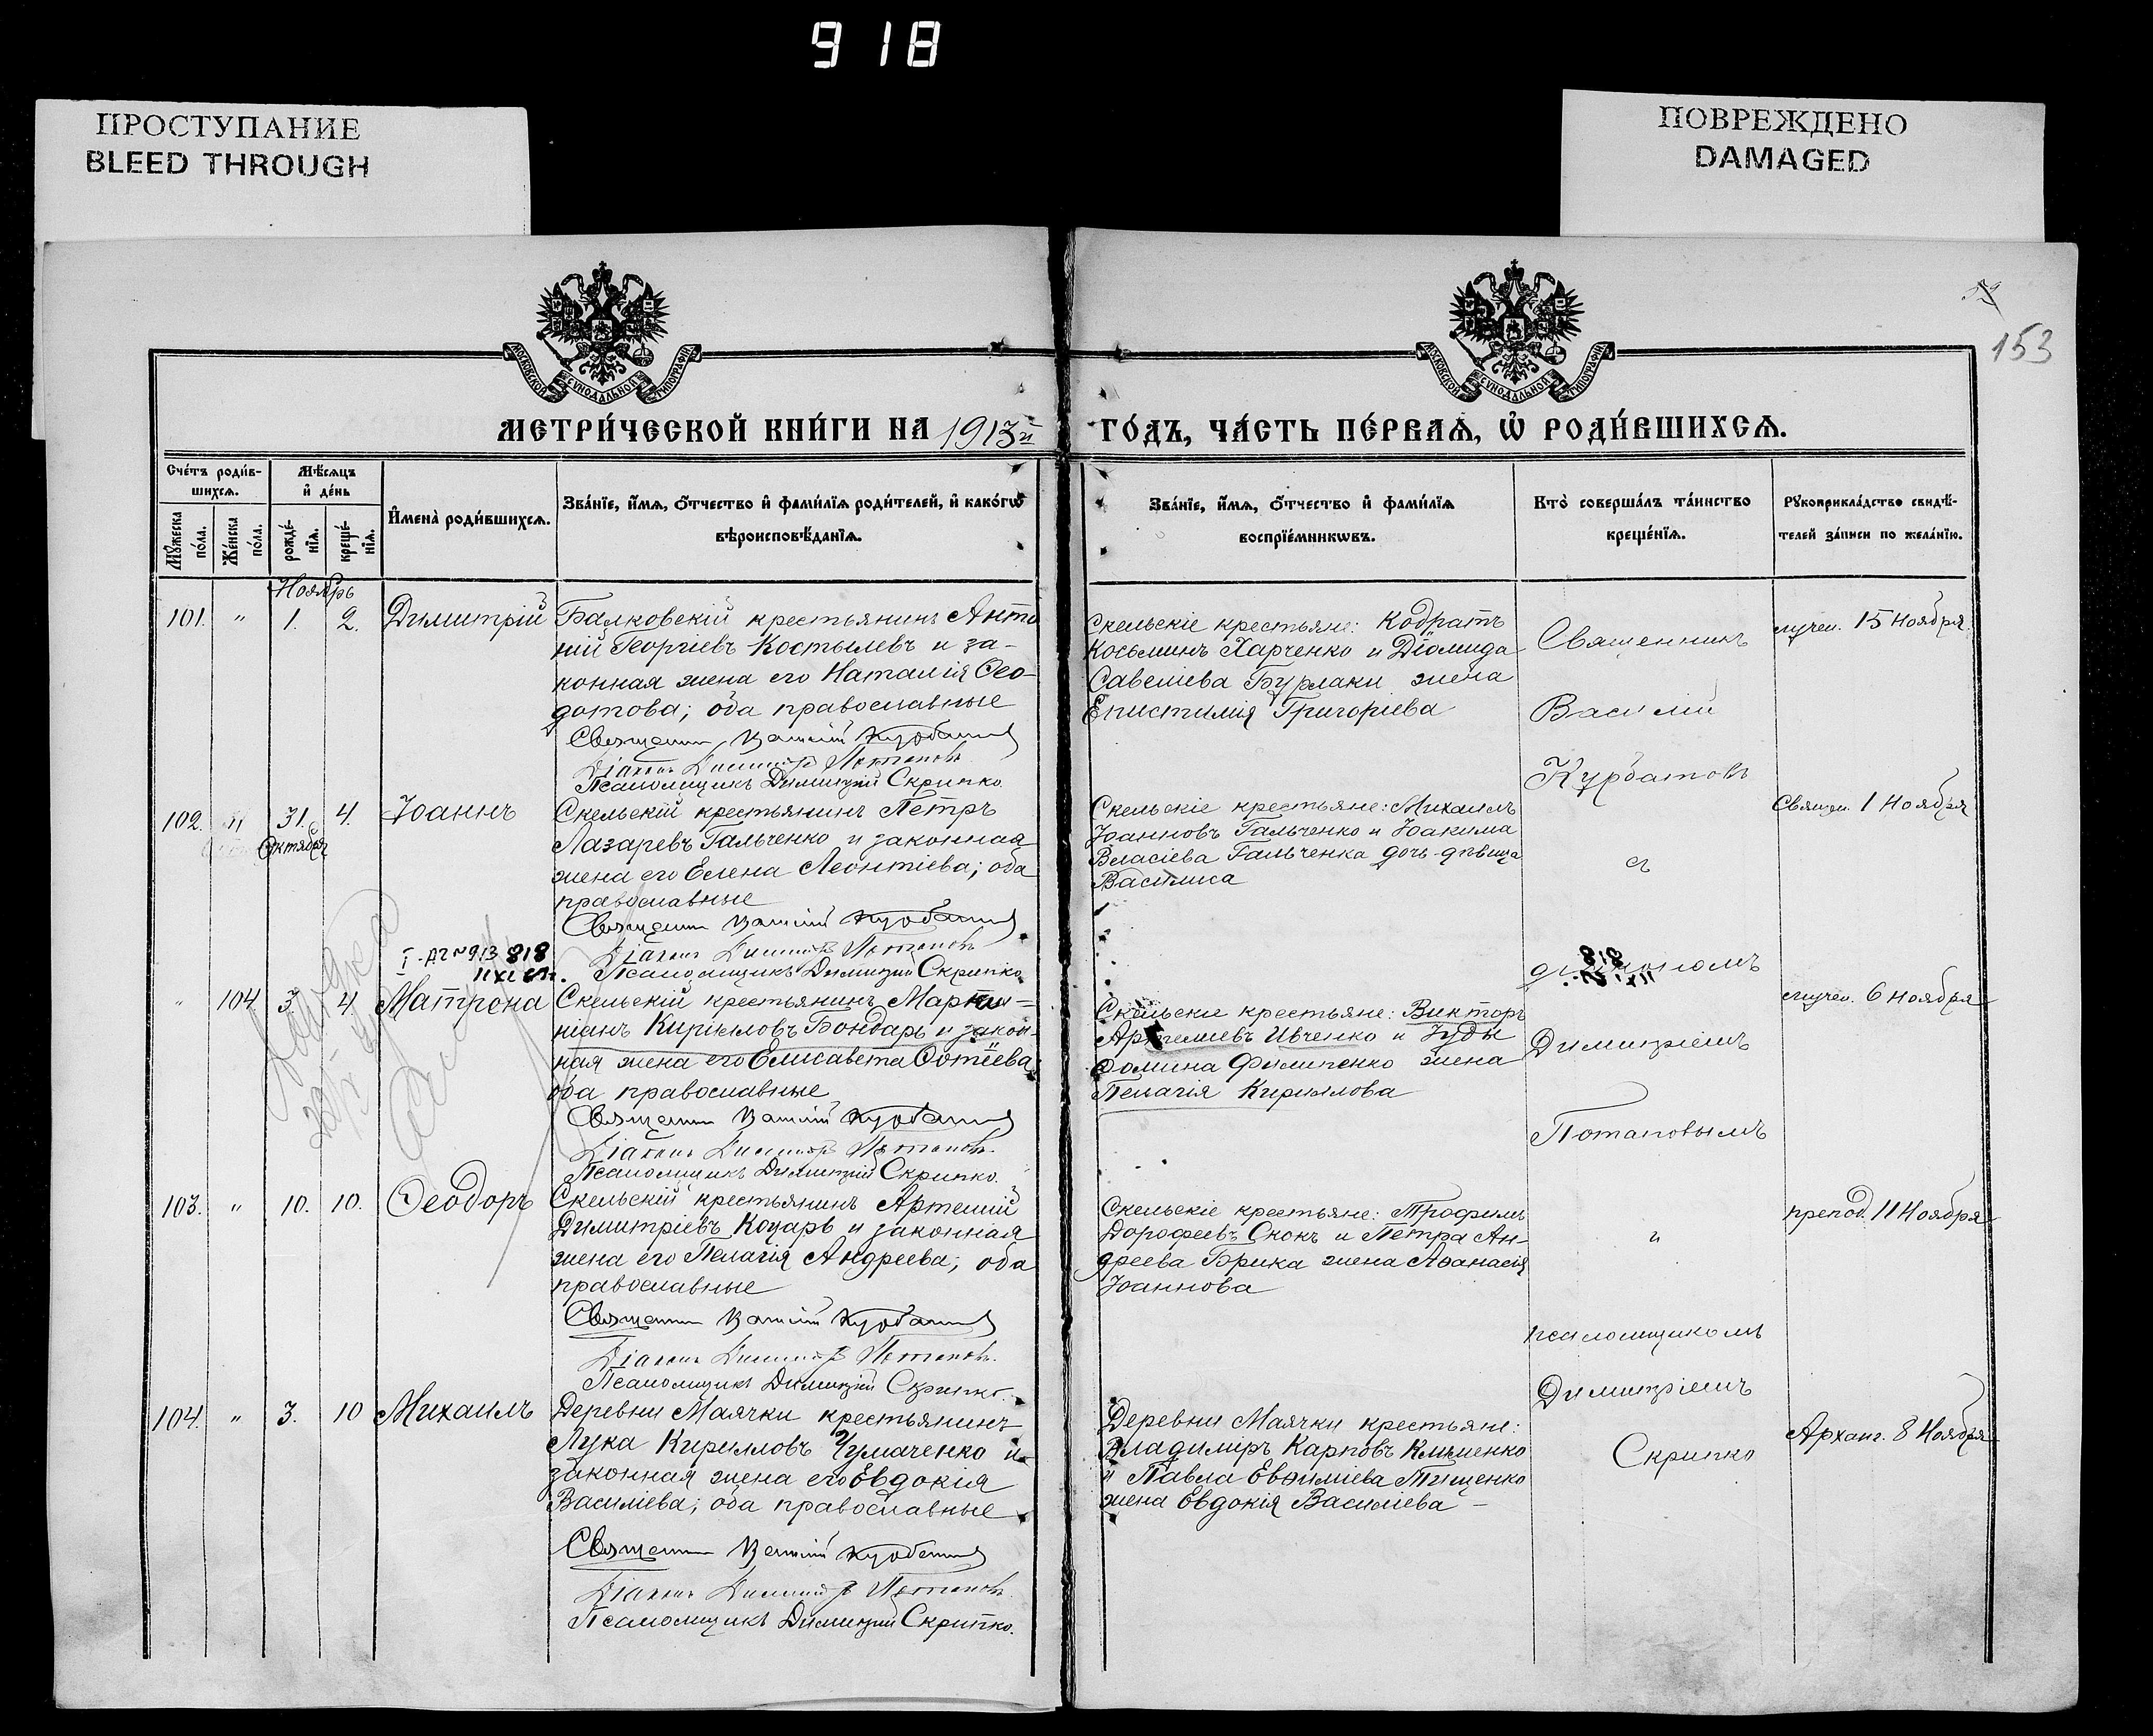 918
ПРОСТУПАНИЕ
BLEED THROUGH
ПОВРЕЖДЕНО
DAMAGED
153
МОСКОВСКОЙ СѴНОДАЛЬНОЙ ТИПОГРАФІИ
МОСКОВСКОЙ СѴНОДАЛЬНОЙ ТИПОГРАФІИ
МЕТРИ́ЧЕСКОЙ КНИ́ГИ НА 1913й ГО́ДЪ, ЧА́СТЬ ПЕ́РВАѦ, Ѡ҆ РОДИ́ВШИХСѦ.
Сче́тъ роди́в-
шихсѧ.
Мѣ́сѧцъ
и҆ де́нь
Мꙋ́жеска по́ла.
Же́нска по́ла.
рожде́-
нїѧ.
креще́-
нїѧ.
И҆мена̀ роди́вшихсѧ.
Зва́нїе, и҆́мѧ, ѻ҆́тчество и҆ фами́лїѧ роди́телей, и҆ како́гѡ
вѣроисповѣ́данїѧ.
Зва́нїе, и҆́мѧ, ѻ҆́тчество и҆ фами́лїѧ
воспрїе́мникѡвъ.
Кто̀ соверша́лъ та́инство
креще́нїѧ.
Рꙋкоприкла́дство свидѣ́-
телей за́писи по жела́нїю.
Ноябрь
101. " 1. 2. Димитрій
Балковскій крестьянинъ Анто
ній Георгіевъ Костылевъ и за-
конная жена его Наталія Ѳео-
дотова; оба православные
Священн. Василій Курбатов
Діаконъ Димитр. Потаповъ
Псаломщикъ Димитрій Скрипко.
Скельскіе крестьяне: Кодратъ
Косьминъ Харченко и Діомида
Савеліева Бурлаки жена
Епистимія Григоріева
Священникъ
Василій
Курбатовъ
с
діакономъ
Димитріемъ
Потаповымъ
и
псаломщикомъ
Димитріемъ
Скрипко
мучен. 15 Ноября
102. " 31. 4. Іоаннъ
Октября
Скельскій крестьянинъ Петръ
Лазаревъ Гальченко и законная
жена его Елена Леонтіева; оба
православные
Священн Василій Курбатов
Діаконъ Димитр Потаповъ
Псаломщикъ Димитрій Скрипко
Скельскіе крестьяне: Михаилъ
Іоанновъ Гальченко и Іоакима
Власіева Гальченка дочь-дѣвица
Василиса
Священ. 1 Ноября
818
818
" 104 3. 4. Матрона
Скельскій крестьянинъ Марти-
ніанъ Кирилловъ Бондарь и закон-
ная жена его Елисавета Фотіева
оба православные
Священн Василій Курбатов
Діаконъ Димитр Потаповъ.
Псаломщикъ Димитрій Скрипко.
Скельскіе крестьяне: Викторъ
Артемиевъ Ивченко и Іуды
Ѳомина Филипенко жена
Пелагія Кириллова
мучен. 6 Ноября
103. " 10. 10. Ѳеодоръ
Скельскій крестьянинъ Артемій
Димитріевъ Коцарь и законная
жена его Пелагія Андреева; оба
православные
Священн Василій Курбатов
Діаконъ Димитр Потаповъ.
Псаломщикъ Димитрій Скрипко.
Скельскіе крестьяне: Трофимъ
Дорофеевъ Скокъ и Петра Ан-
дреева Брика жена Аѳанасія
Іоаннова
препод. 11 Ноября
104. " 3. 10 Михаилъ
Деревни Маячки крестьянинъ
Лука Кирилловъ Чумаченко и
законная жена его Евдокія
Василіева; оба православные
Священн Василій Курбатов
Діаконъ Димитр Потаповъ.
Псаломщикъ Димитрій Скрипко.
Деревни Маячки крестьяне:
Владиміръ Карповъ Клименко
и Павла Евѳиміева Тищенко
жена Евдокія Василіева –
Архан. 8 Ноября